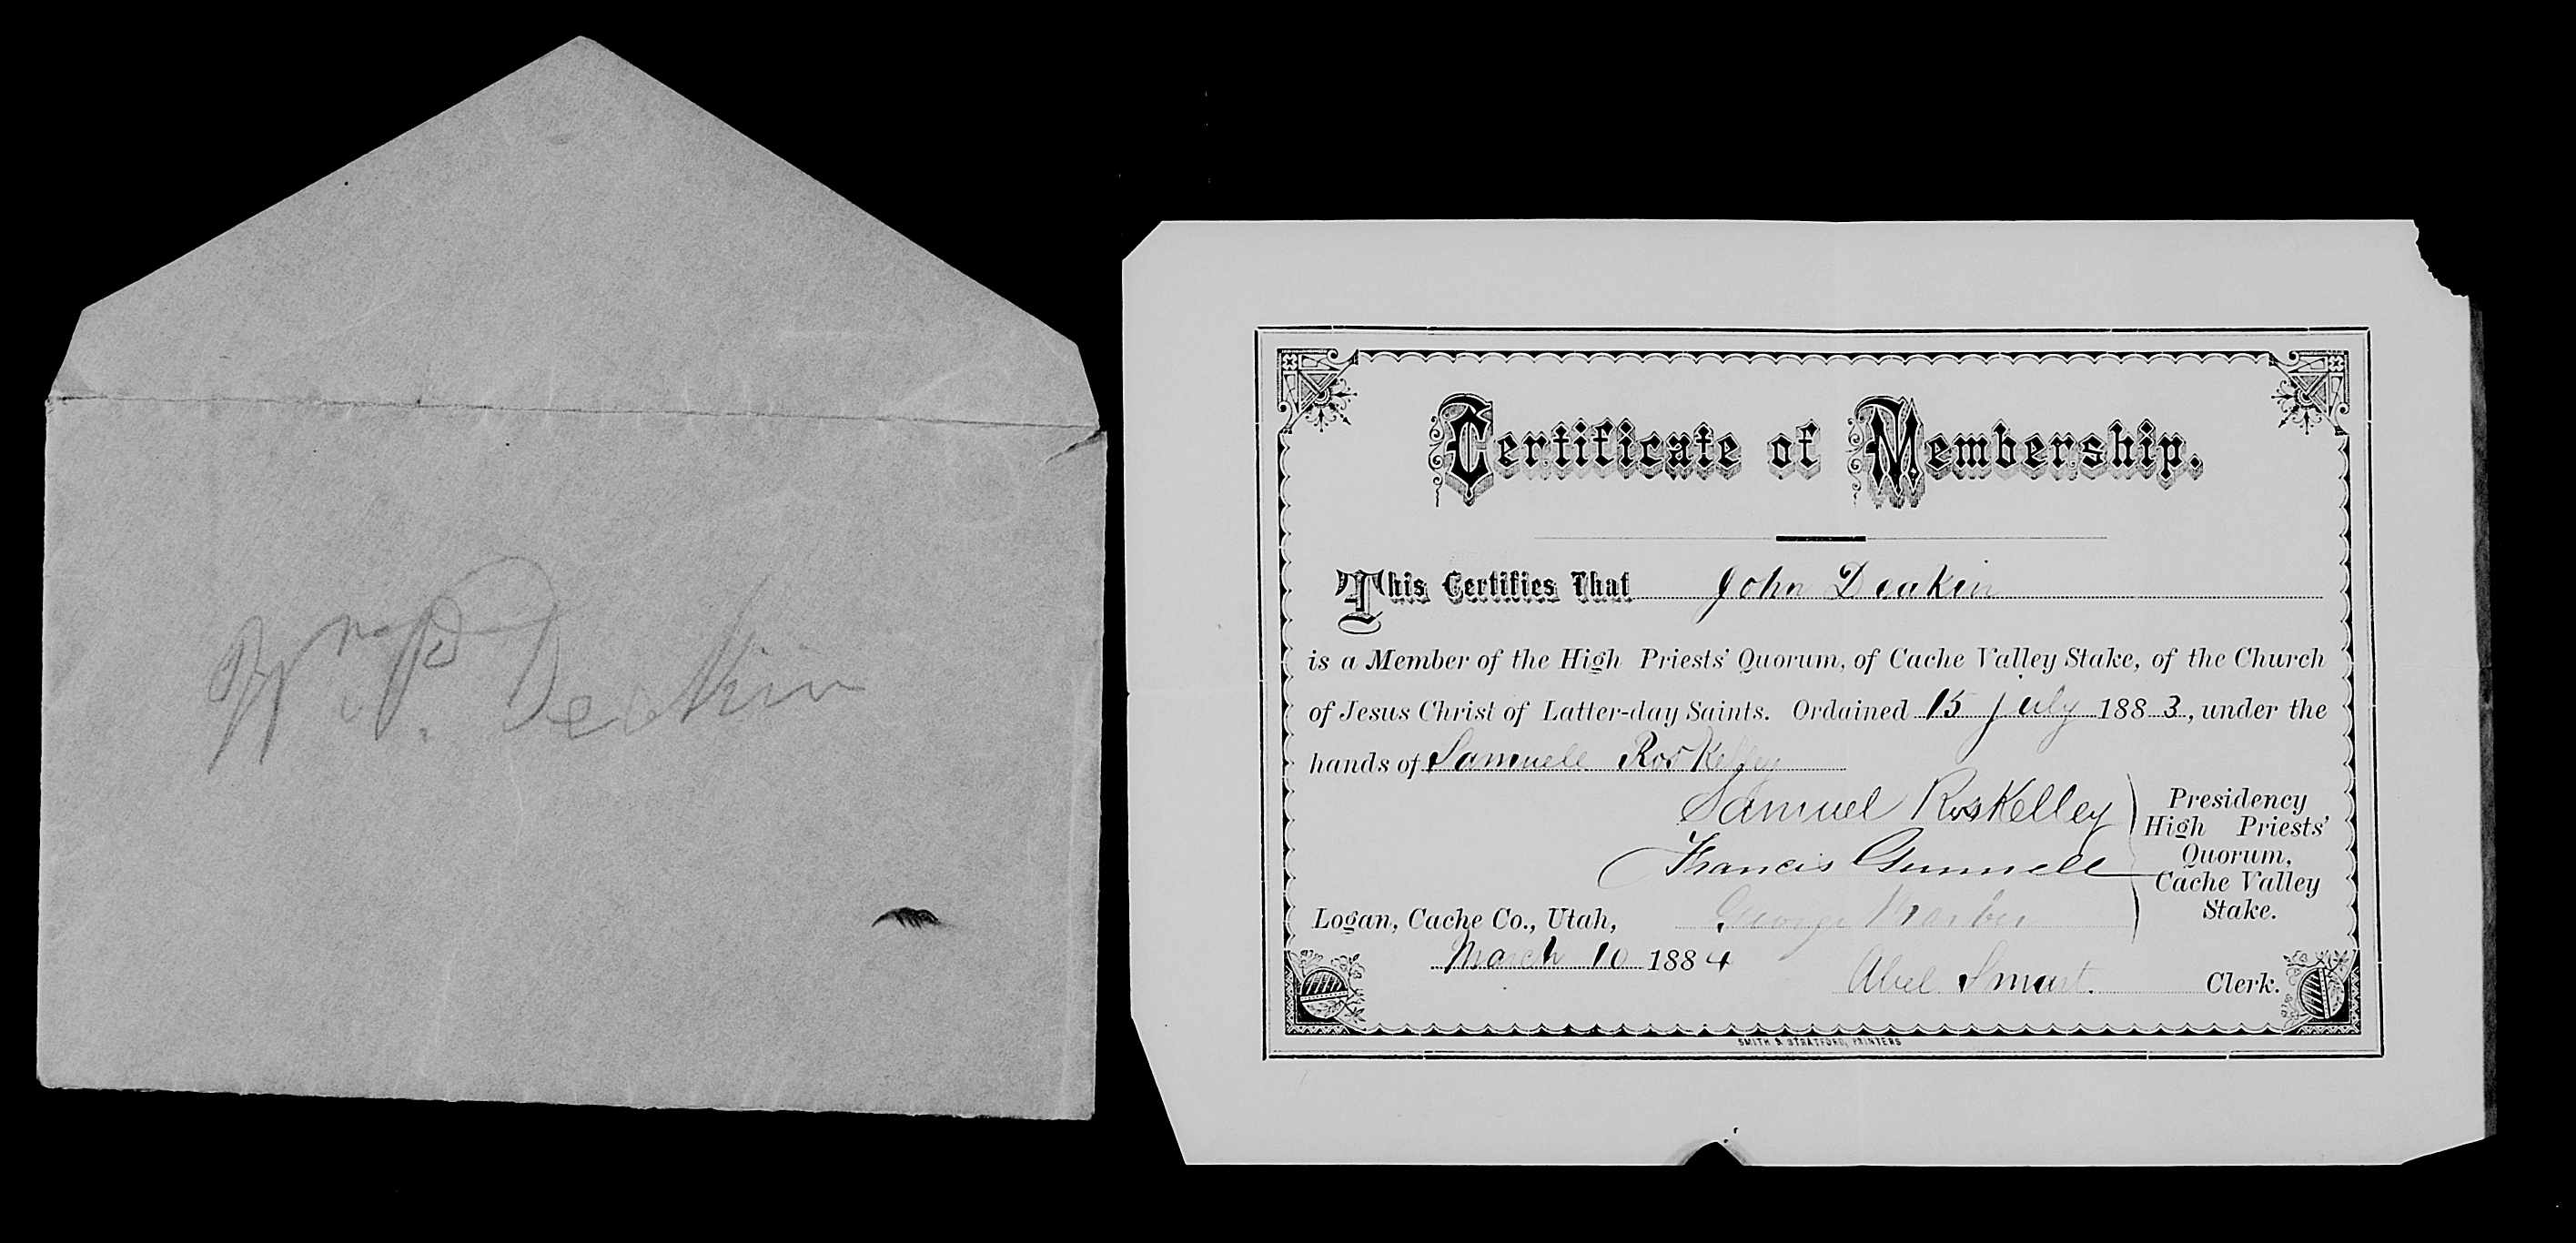 Wm P. Deakin
Certificate of Membership.
This Certifies That John Deakin
is a Member of the High Priests' Quorum, of Cache Valley Stake, of the Church
of Jesus Christ of Latter-day Saints. Ordained 15 July 1883, under the
hands of Samuell Roskelley
Samuel Roskelley
Francis Gunnell
George Barber
Presidency
High Priests'
Quorum,
Cache Valley
Stake.
Logan, Cache Co., Utah,
March 10 1884
Abel Smart. Clerk.
SMITH & STRATFORD, PRINTERS